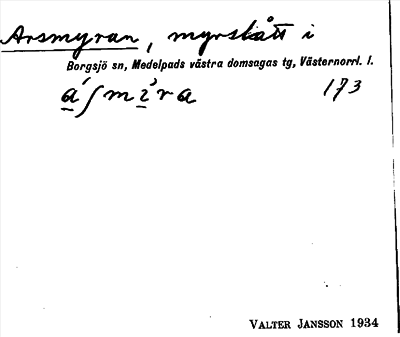 Arsmyran, myrslått i
Borgsjö sn, Medelpads västra domsagas tg, Västernorrl. l.
173
VALTER JANSSON 1934